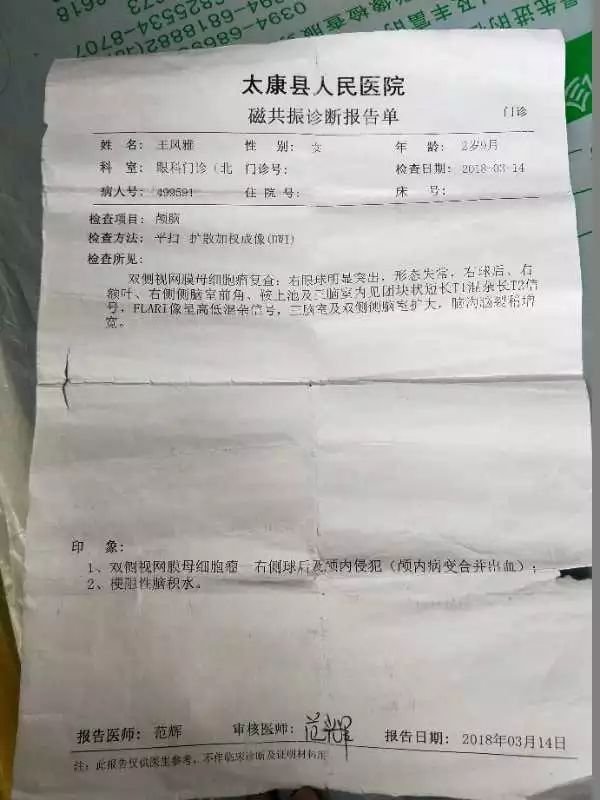 最先进的
及丰富的
影像检查服务
0394-6818882
6825534
0394-686
534-8707
太康县人民医院
磁共振诊断报告单
门诊
姓 名: 王凤雅 性 别: 女 年 龄: 2岁9月
科 室: 眼科门诊(北 门诊号: 检查日期: 2018-03-14
病人号: 499591 住 院 号: 床 号:
检查项目: 颅脑
检查方法: 平扫 扩散加权成像(DWI)
检查所见:
双侧视网膜母细胞瘤复查: 右眼球明显突出, 形态失常, 右球后、右
额叶、右侧侧脑室前角、鞍上池及三脑室内见团块状短长T1混杂长T2信
号, FLARI像呈高低混杂信号, 三脑室及双侧侧脑室扩大, 脑沟脑裂稍增
宽。
印 象:
1、双侧视网膜母细胞瘤 右侧球后及颅内侵犯(颅内病变合并出血);
2、梗阻性脑积水。
报告医师: 范辉 审核医师: 范辉 报告日期: 2018年03月14日
注: 此报告仅供医生参考, 不作临床诊断及证明材料用